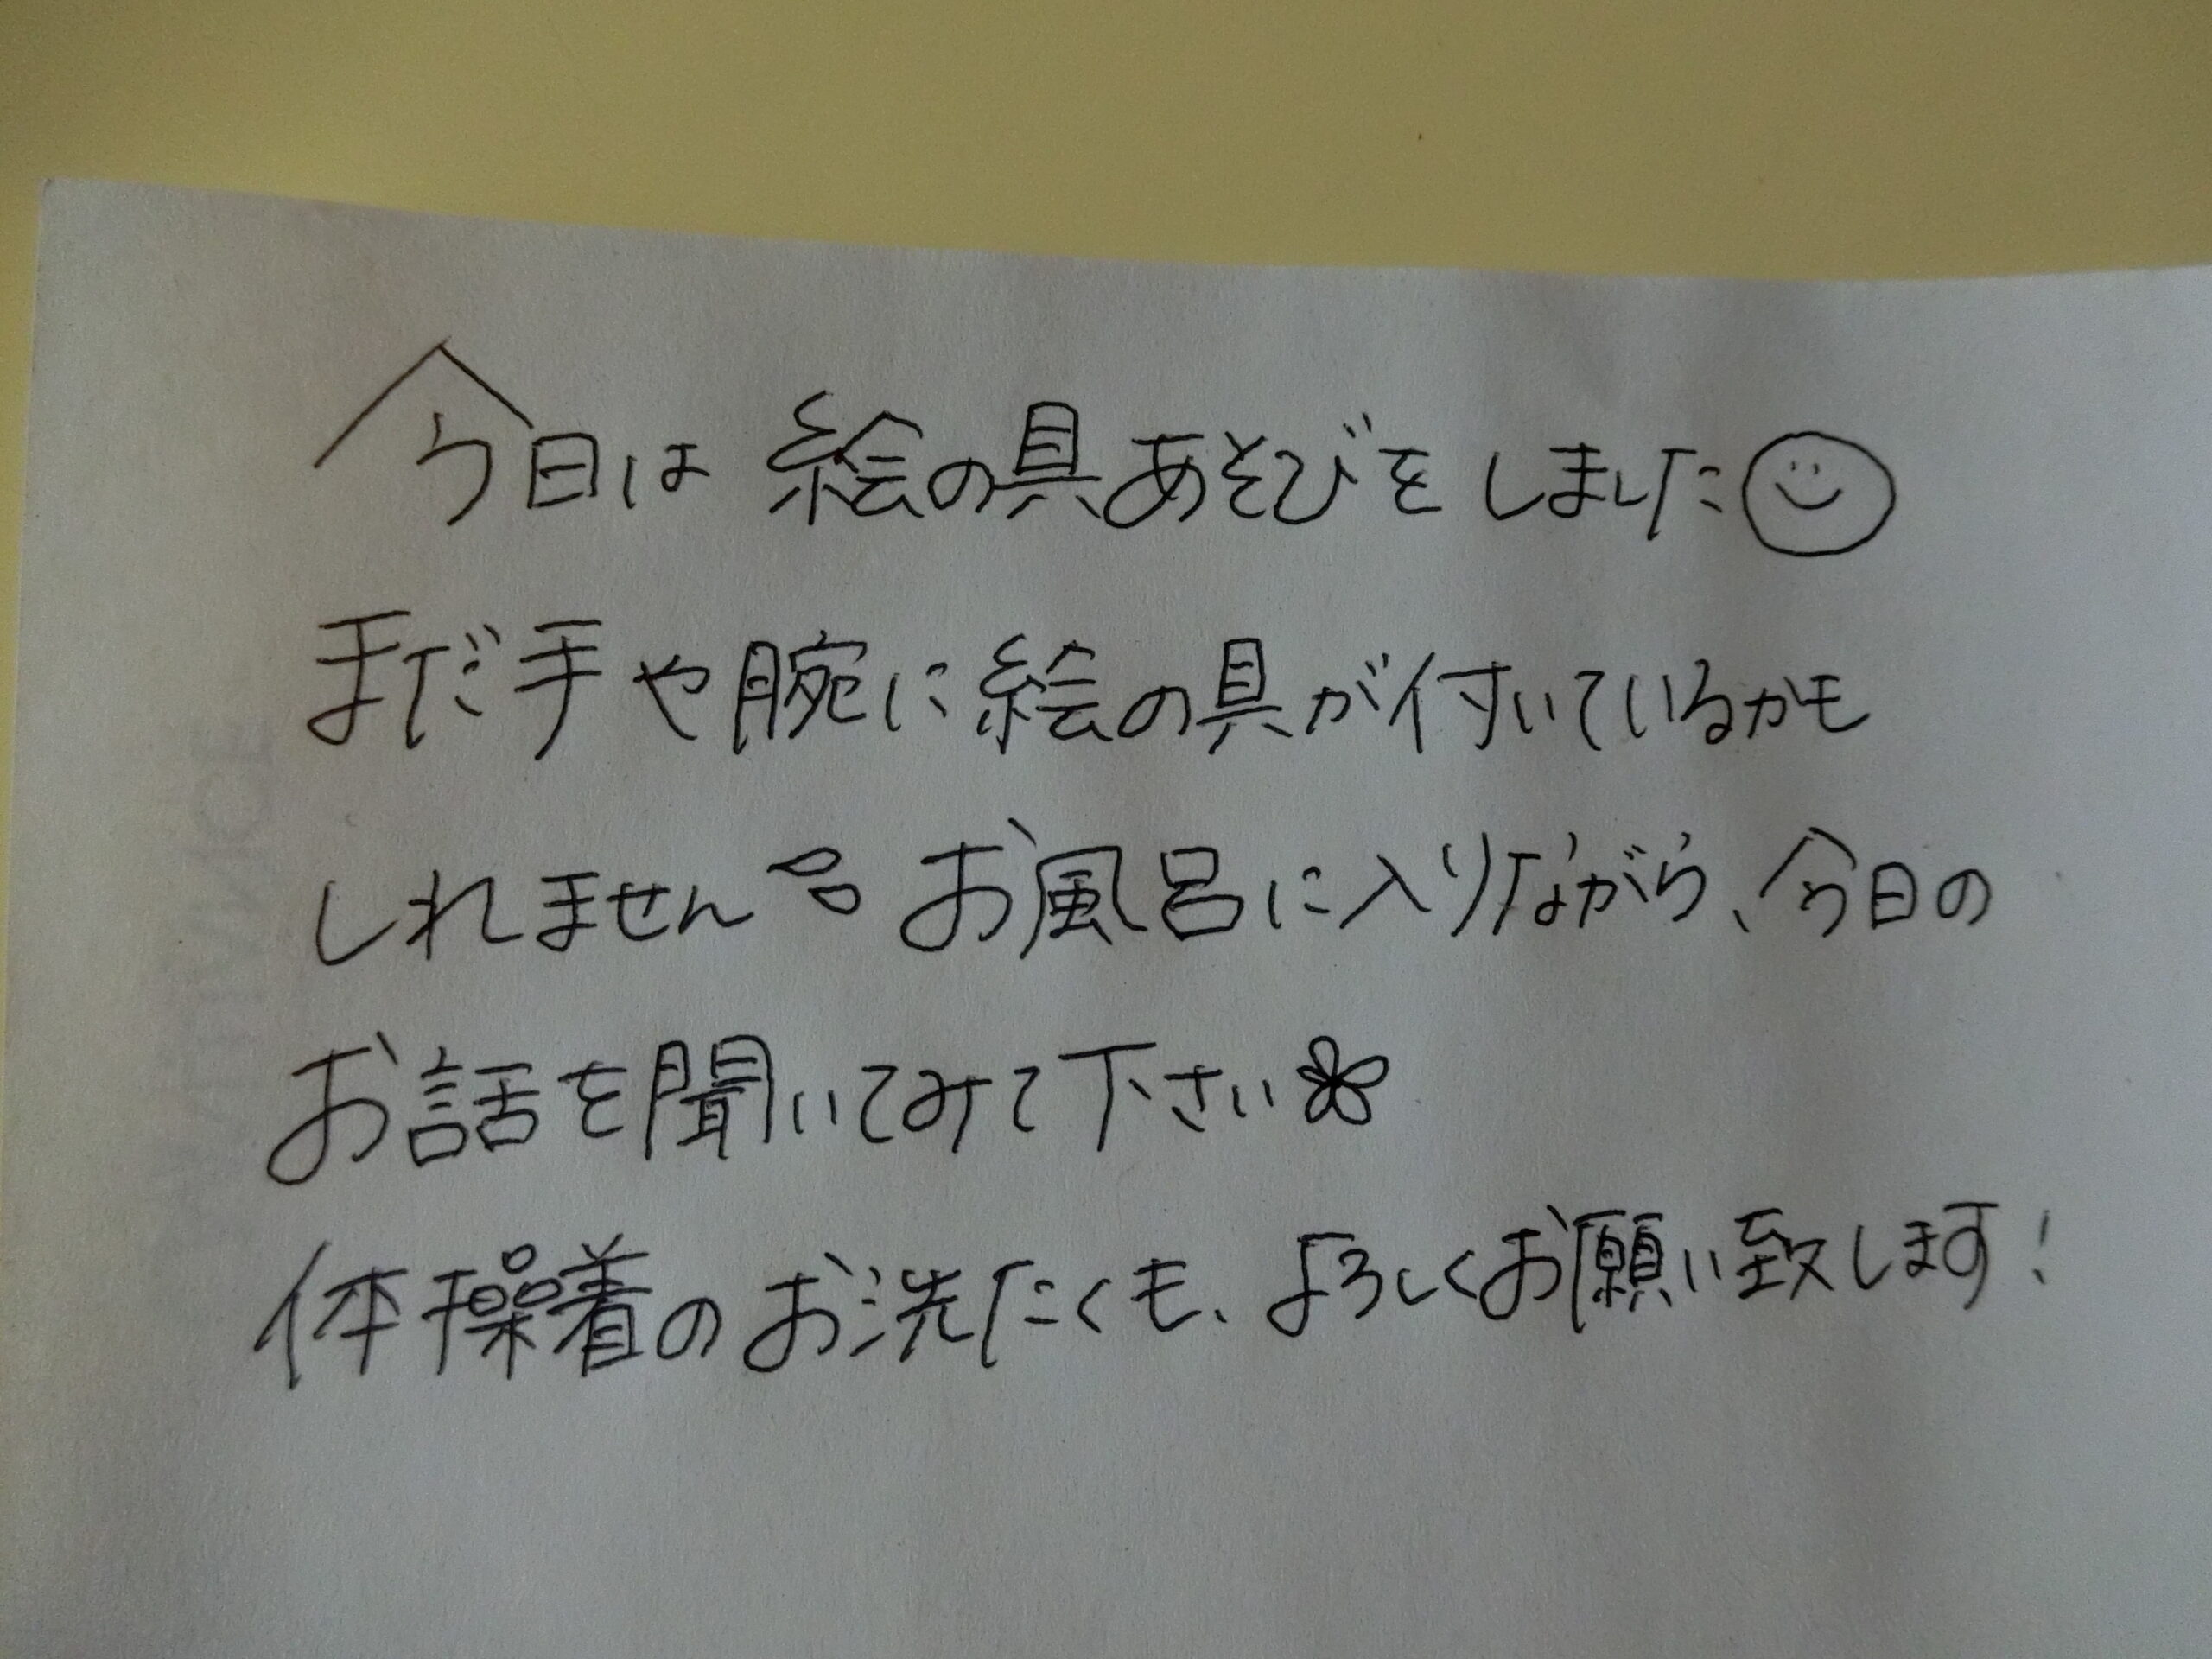 今日は絵の具あそびをしました
まだ手や腕に絵の具が付いているかも
しれません。お風呂に入りながら、今日の
お話を聞いてみて下さい
体操着のお洗たくも、よろしくお願い致します!